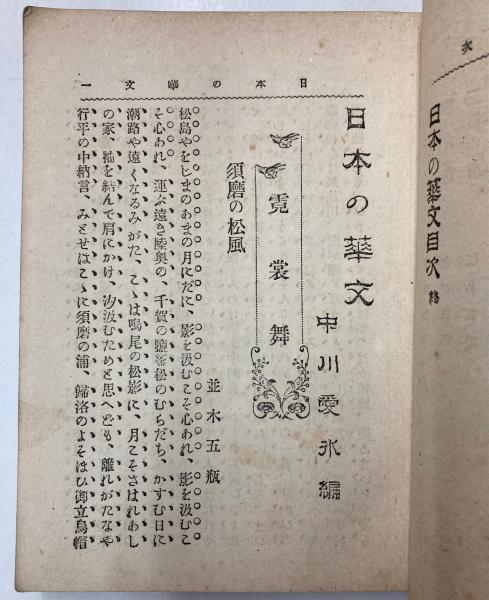 次
日本の華文目次 終
日本の華文 一
日本の華文
中川愛氷編
霓裳舞
須磨の松風
並木五瓶
松島やをじまのあまの月にだに、影を汲むこそ心あれ、影を汲むこ
そ心あれ、運ぶ遠き陸奥の、千賀の鹽釜松のむらだち、かすむ日に
潮路や遠くなるみがた、こゝは鳴尾の松影に、月こそさはれあし
の家、袖を結んで肩にかけ、汐汲むためと思へども、離れがたなや
行平の中納言、みとせはこゝに須磨の浦、歸洛のよそほひ御立烏帽